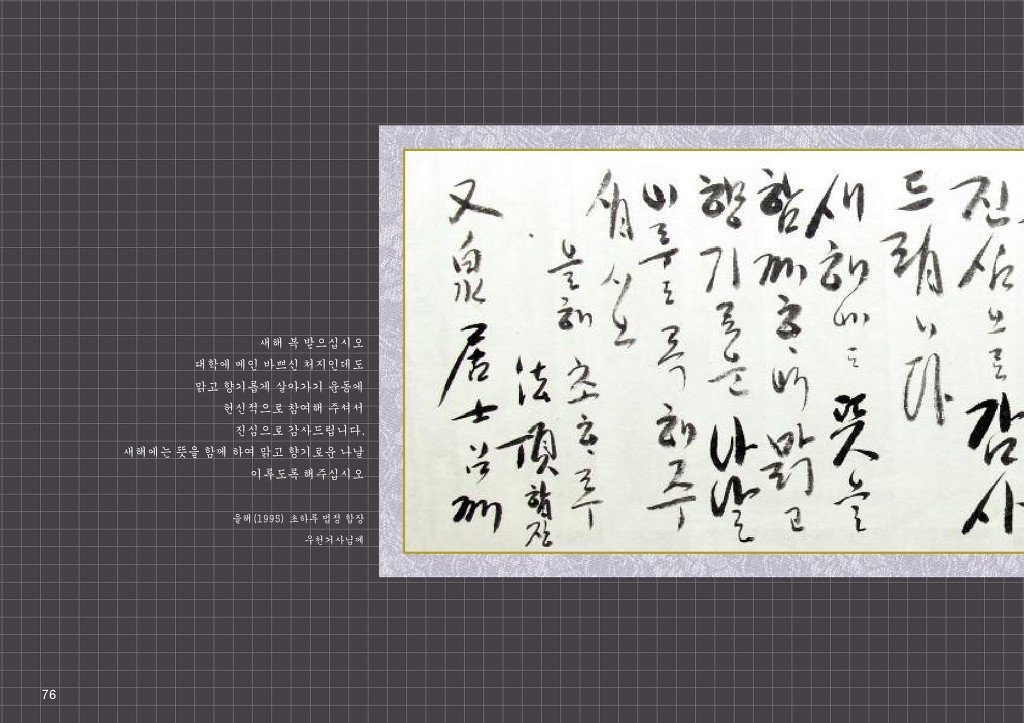 새해 복 받으십시오
대학에 메인 바쁘신 처지인데도
맑고 향기롭게 살아가기 운동에
헌신적으로 참여해 주셔서
진심으로 감사드립니다.
새해에는 뜻을 함께 하여 맑고 향기로운 나날
이룩도록 해주십시오
올해(1995) 초하루 법정 합장
우천거사님께
진심으로 감사
드립니다
새해에는 뜻을
함께 하여 맑고
향기로운 나날
이루도록 해주
십시오
올해 초하루
法頂 합장
又泉居士님께
76